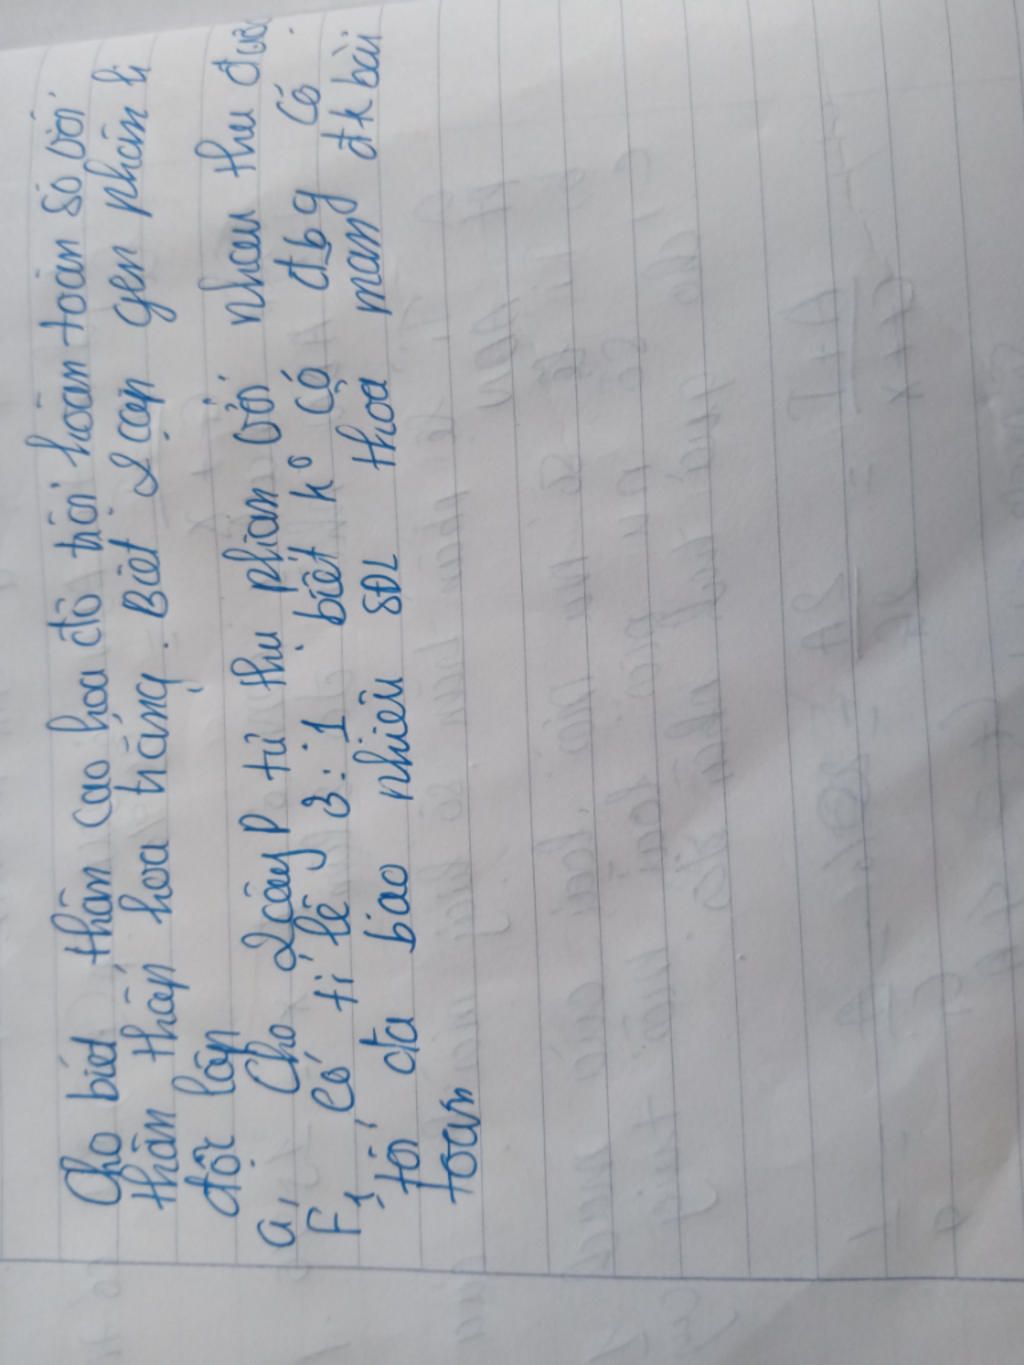 Cho biết thân cao hoa đỏ trội hoàn toàn so với
thân thấp hoa trắng. Biết 2 cặp gen phân li
độc lập
a, Cho 2 cây P tứ thụ phấn với nhau thu được
F1 có tỉ lệ 3:1 biết ko có đbg có
tối đa bao nhiêu SĐL thỏa mãn đk bài
toán